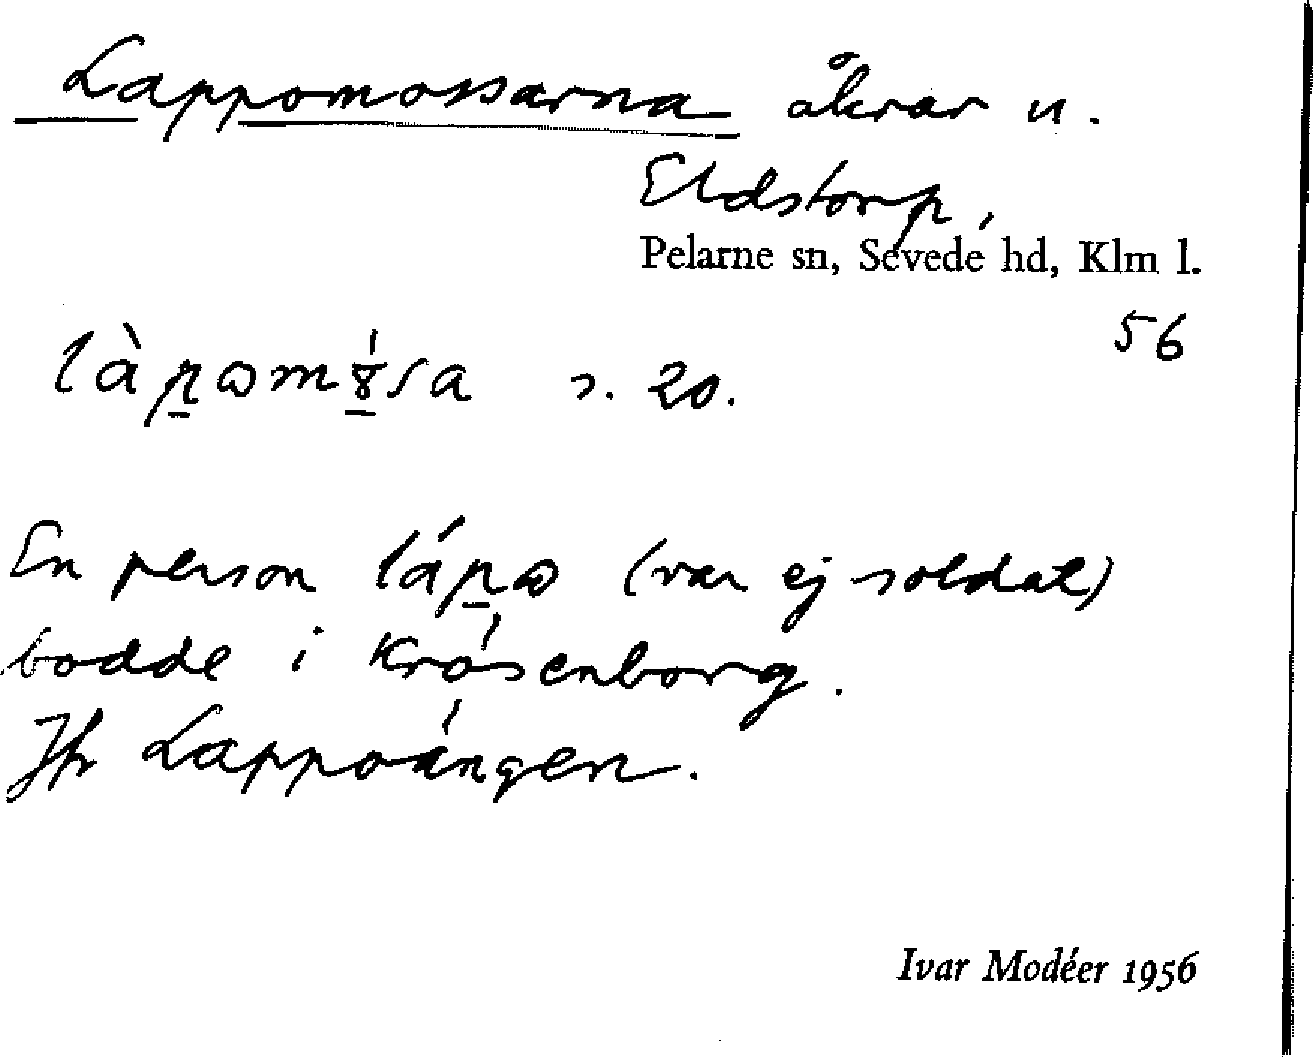 Lappomossarna åkrar u.
Eldstorp,
Pelarne sn, Sevede hd, Klm l.
56
làp̱ωmɤ̱́sa s. 20.
En person láp̱ω (var ej soldat)
bodde i Kråsenborg.
Jfr Lappoängen.
Ivar Modéer 1956